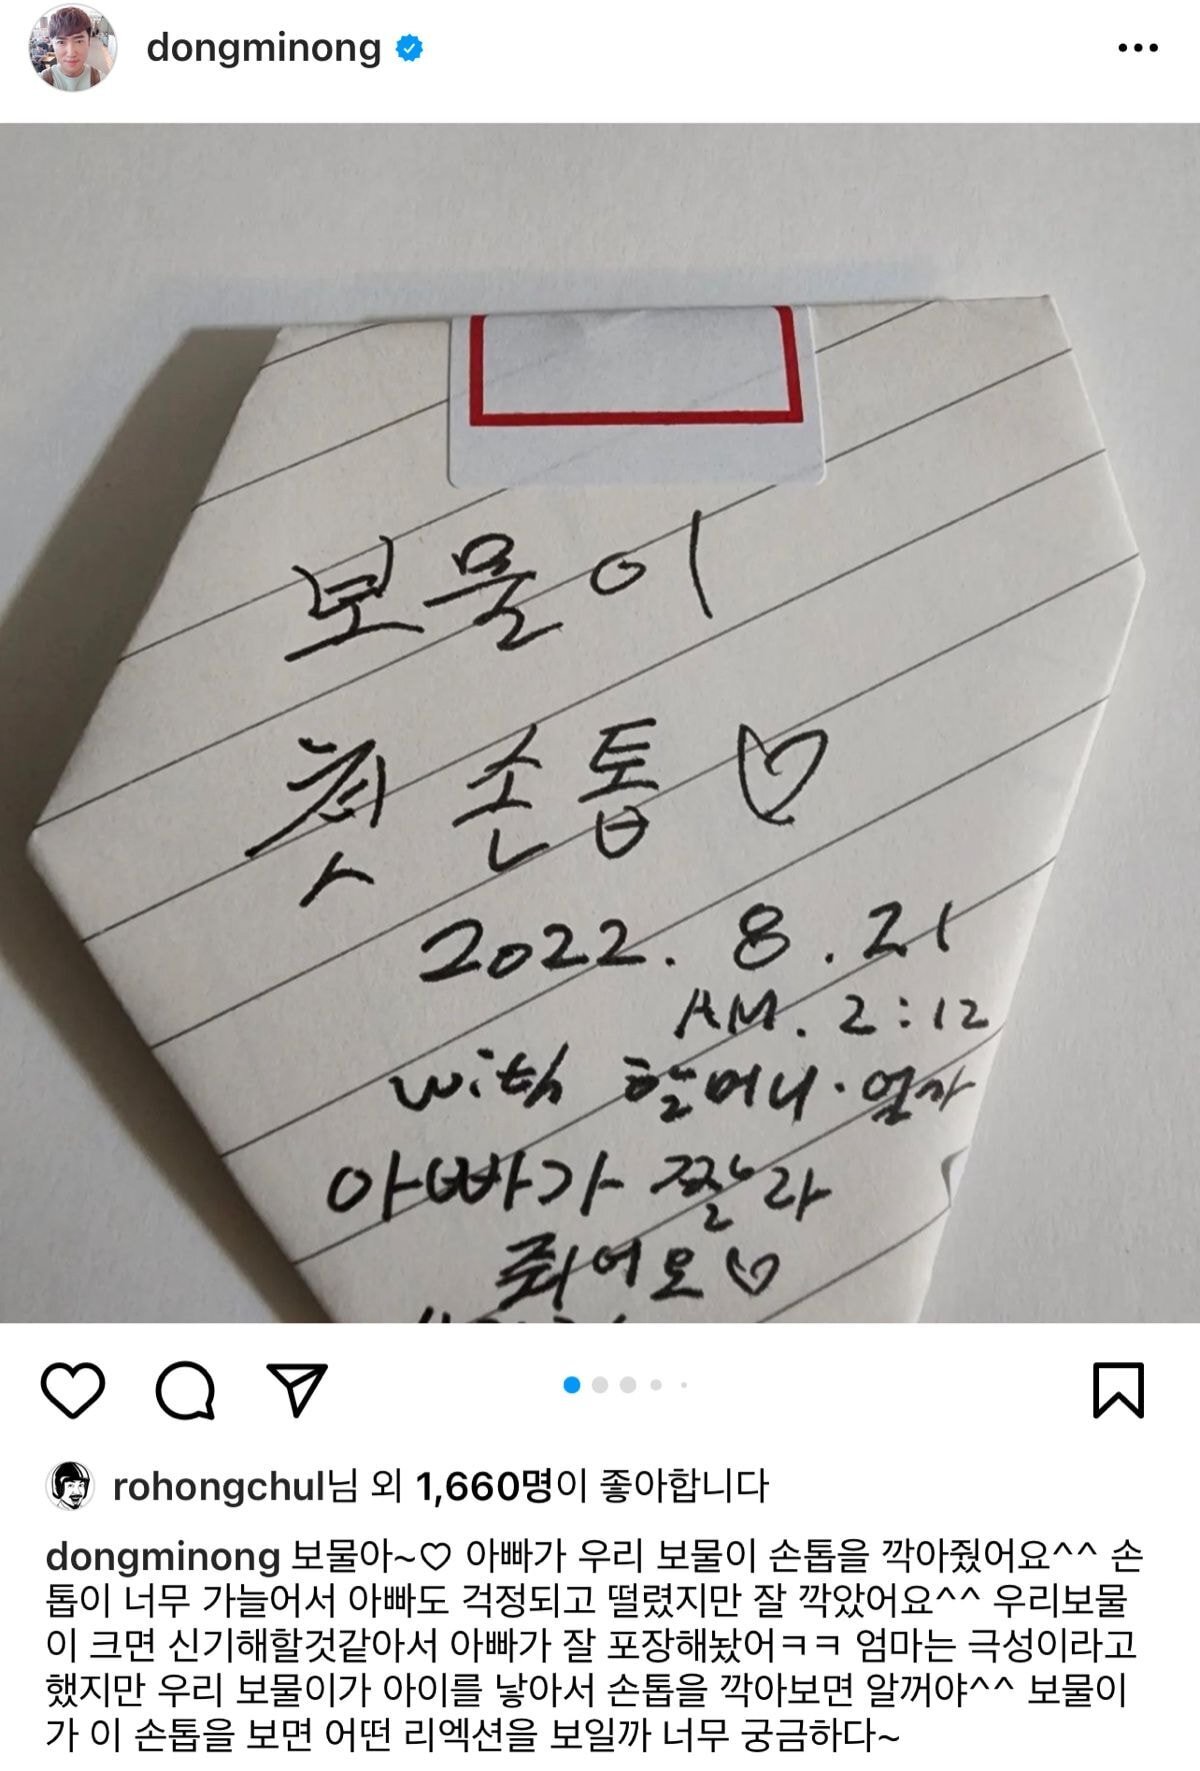 dongminong
보물이
첫 손톱♡
2022. 8. 21
AM. 2:12
with 할머니·엄마
아빠가 짤라
줘어요♡
rohongchul님 외 1,660명이 좋아합니다
dongminong 보물아~♡ 아빠가 우리 보물이 손톱을 깍아줬어요^^ 손
톱이 너무 가늘어서 아빠도 걱정되고 떨렸지만 잘 깍았어요^^ 우리보물
이 크면 신기해할것같아서 아빠가 잘 포장해놨어ㅋㅋ 엄마는 극성이라고
했지만 우리 보물이가 아이를 낳아서 손톱을 깍아보면 알꺼야^^ 보물이
가 이 손톱을 보면 어떤 리엑션을 보일까 너무 궁금하다~